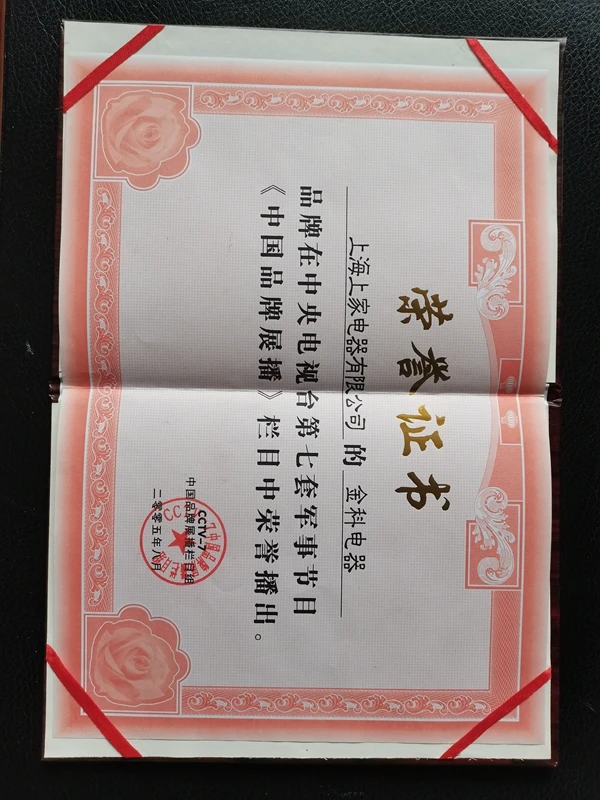 荣誉证书
上海上家电器有限公司的金科电器
品牌在中央电视台第七套军事节目
《中国品牌展播》栏目中荣誉播出。
CCTV-7
中国品牌展播栏目组
二零零五年八月